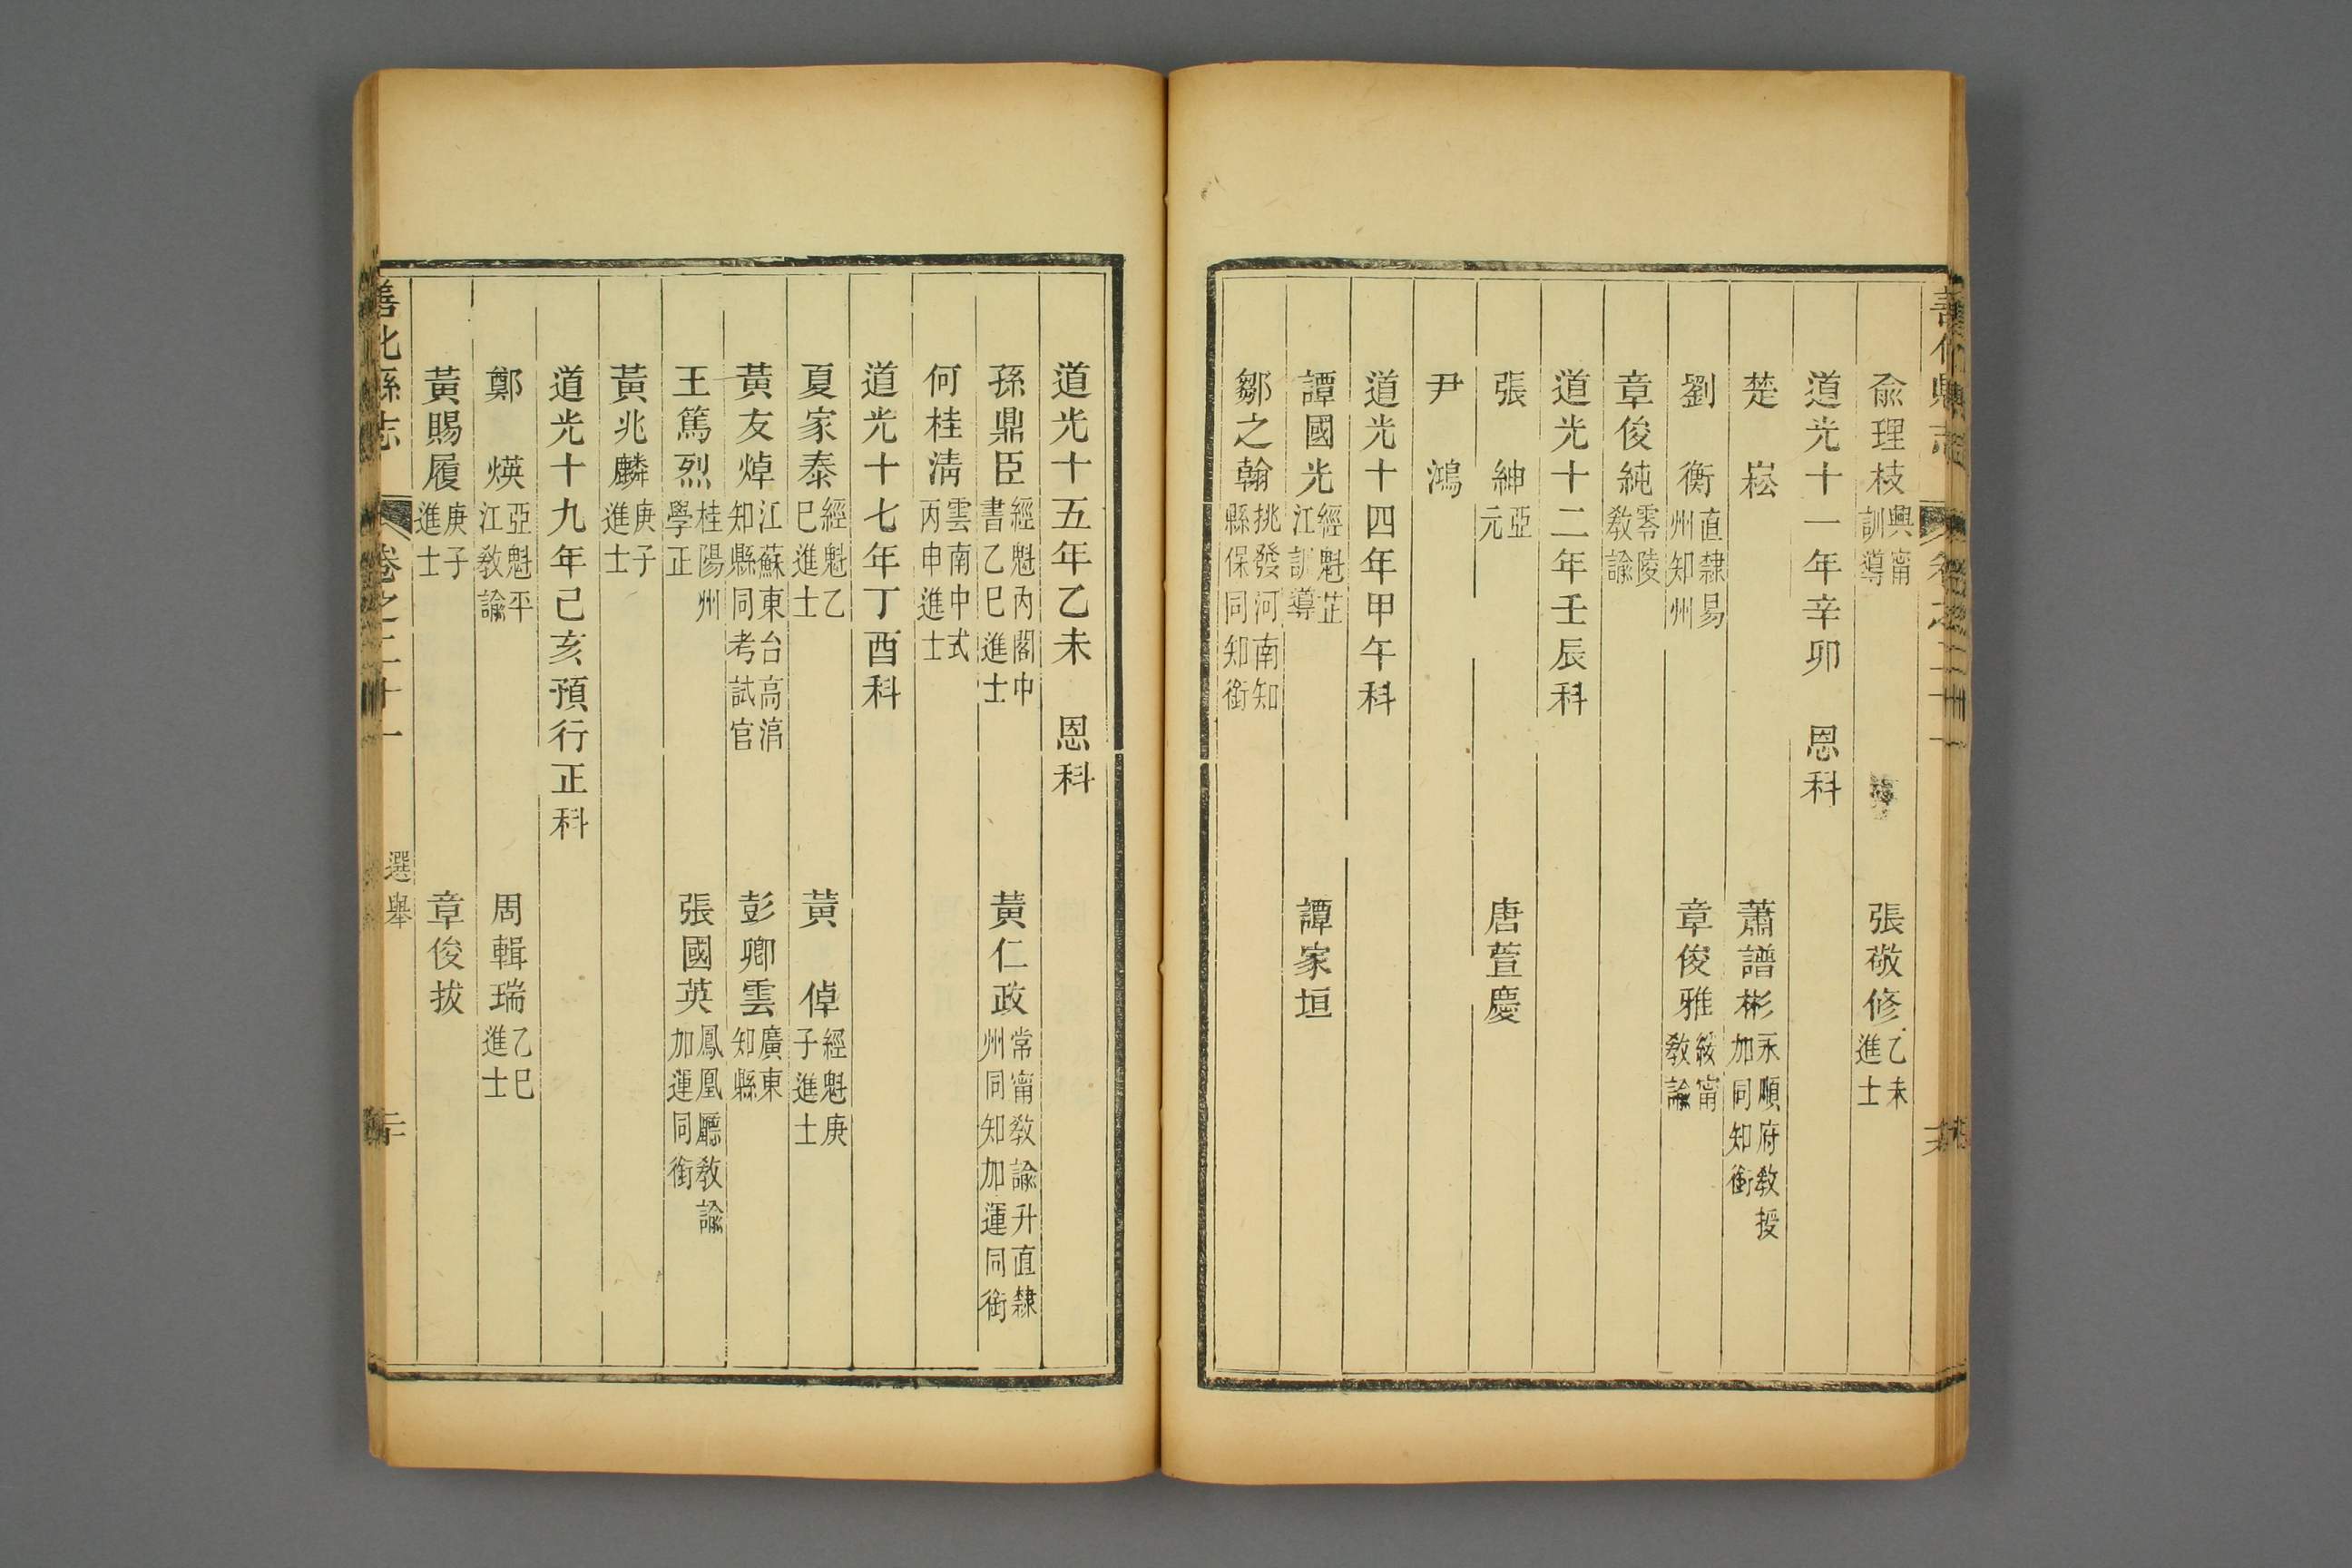 兪理枝興甯訓導　張敬修乙未進士
道光十一年辛卯　恩科
楚　崧　蕭譜彬永順府教授加同知銜
劉　衡直隸易州知州　章俊雅綏甯教諭
章俊純零陵教諭
道光十二年壬辰科
張　紳亞元　唐萱慶
尹　鴻
道光十四年甲午科
譚國光經魁芷江訓導　譚家垣
鄒之翰挑發河南知縣保同知銜
道光十五年乙未　恩科
孫鼎臣經魁內閣中書乙巳進士　黃仁政常甯教諭升直隸州同知加運同銜
何桂清雲南中式丙申進士
道光十七年丁酉科
夏家泰經魁乙巳進士　黃　倬經魁庚子進士
黃友焯江蘇東台高淯知縣同考試官　彭卿雲廣東知縣
王篤烈桂陽州學正　張國英鳳凰廳教諭加運同銜
黃兆麟庚子進士
道光十九年己亥預行正科
鄭　煐亞魁平江教諭　周輯瑞乙巳進士
黃賜履庚子進士　章俊拔
善化縣志　卷之二十一　選舉　二十